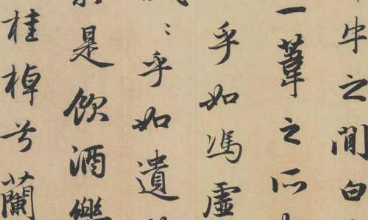 牛之間白
一葦之所
乎如馮虛
乎如遺
是飲酒樂
桂棹兮蘭